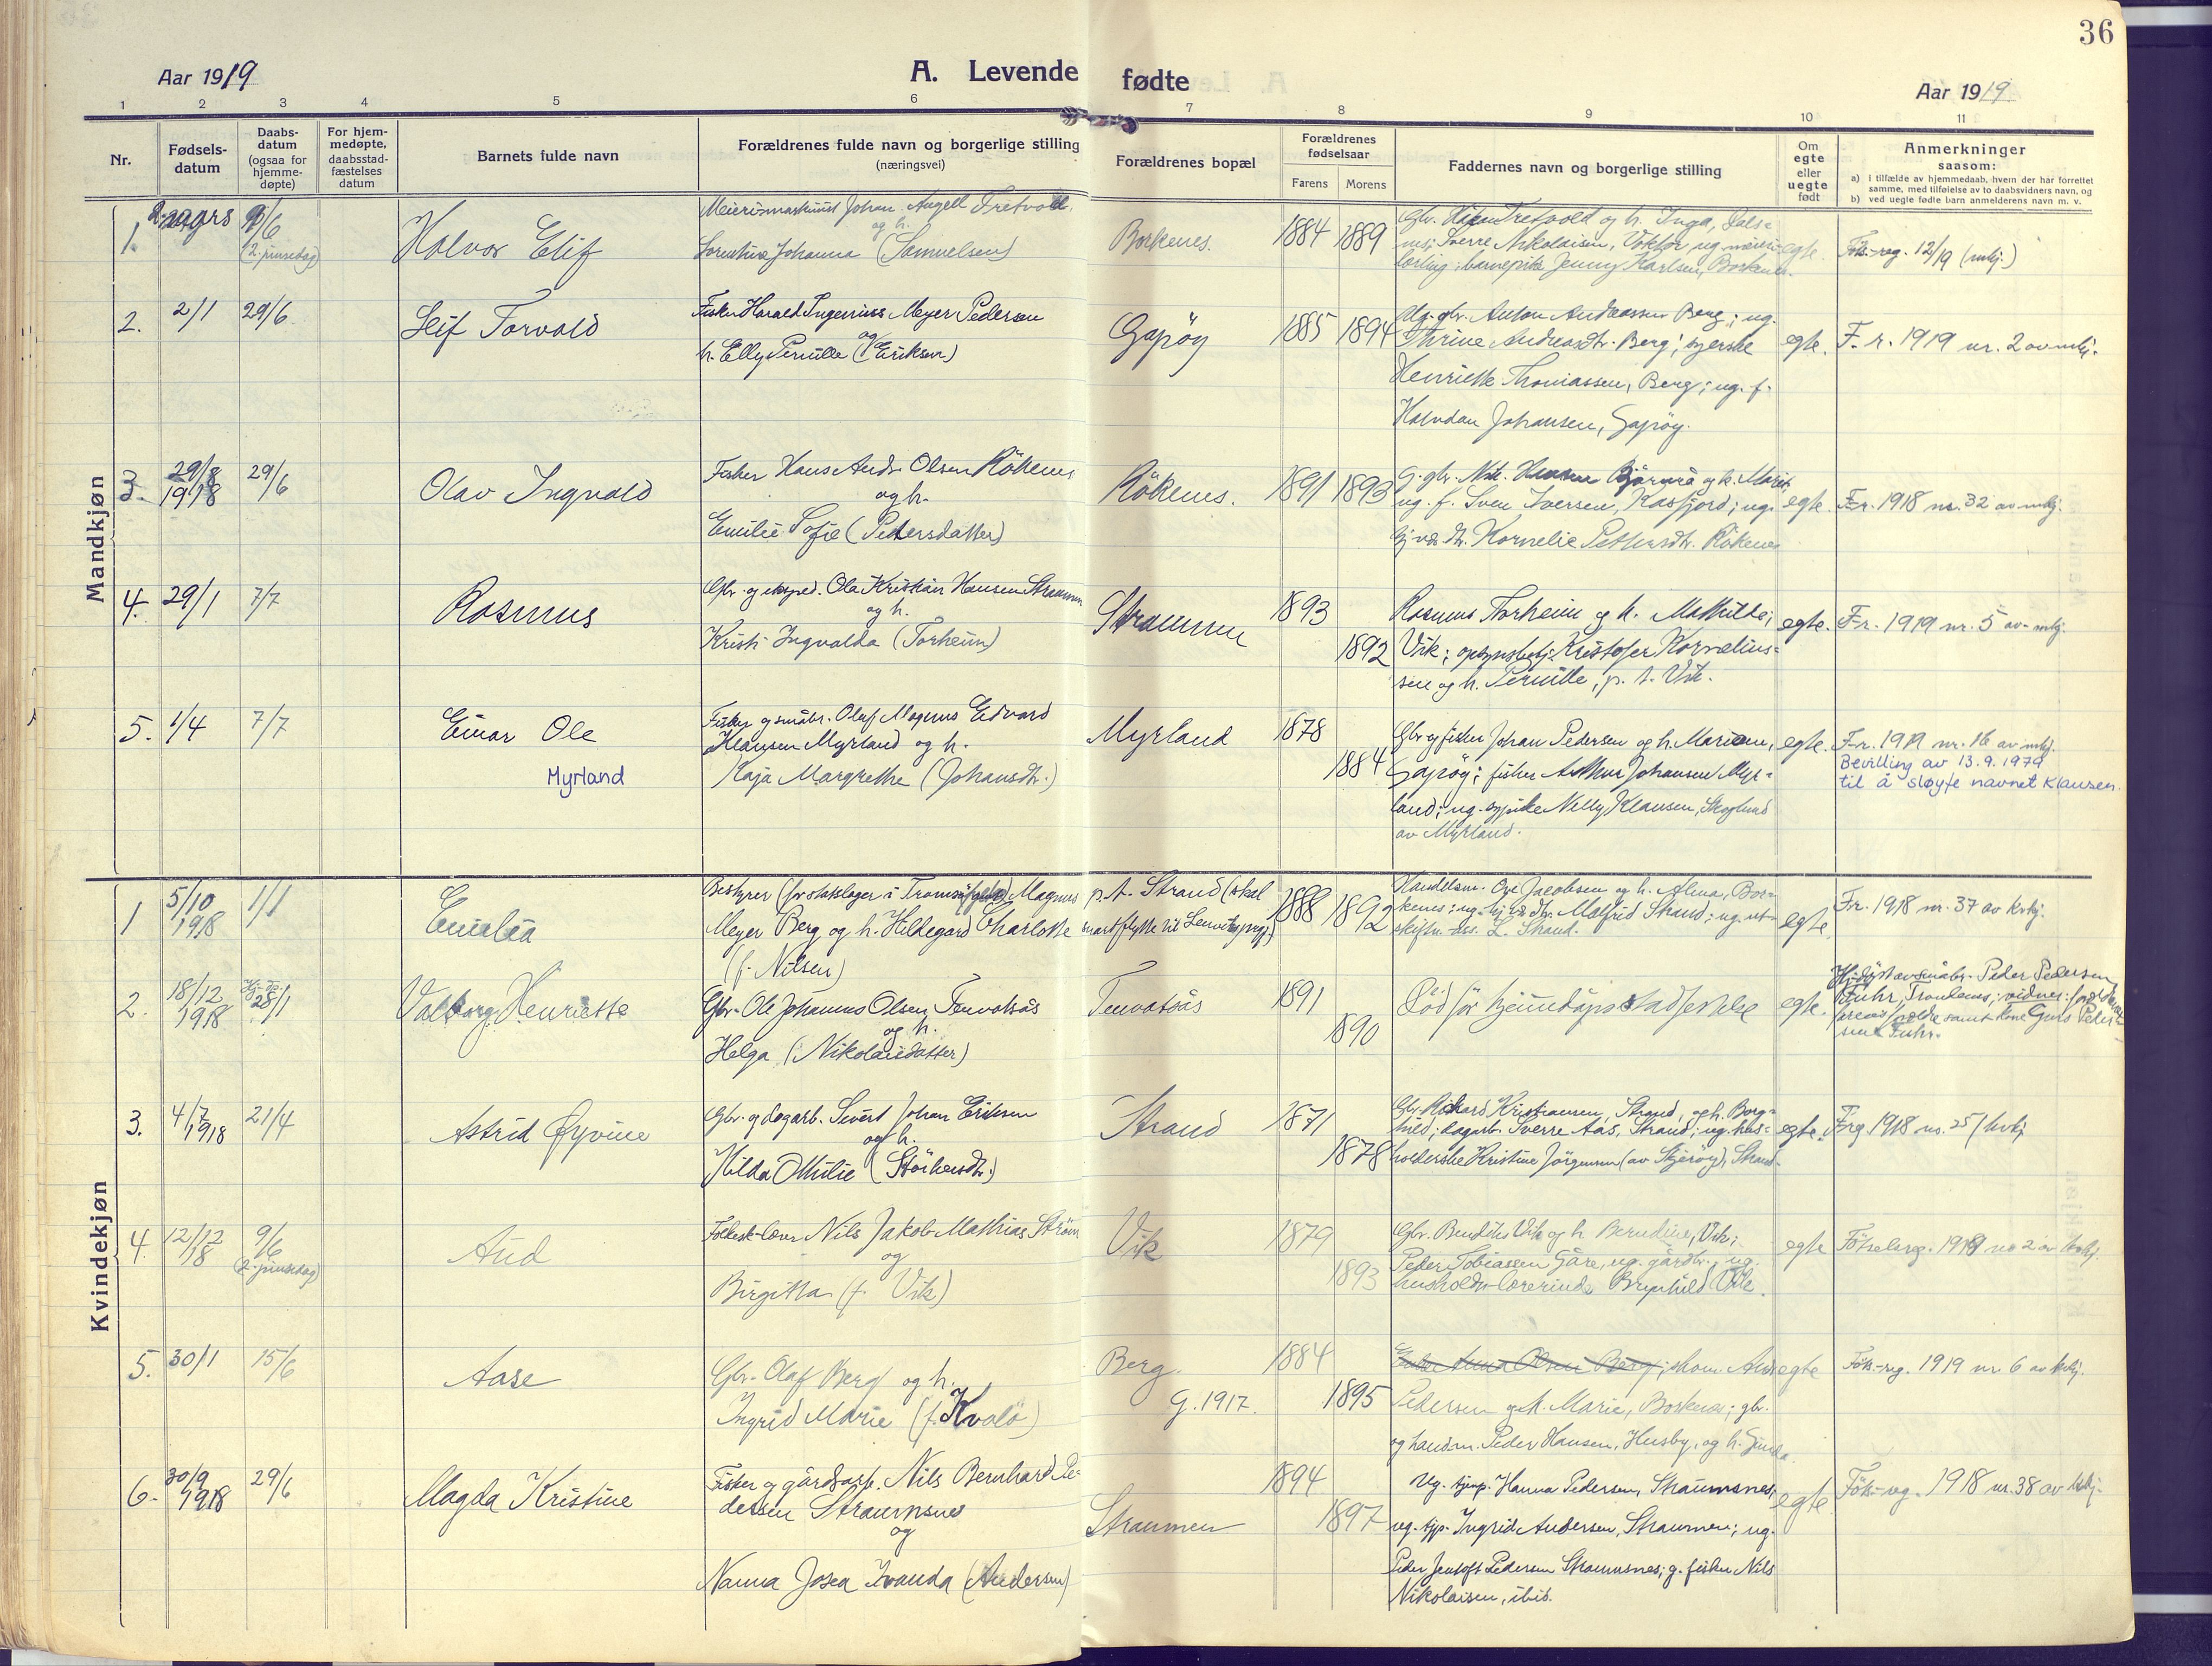 36
Aar 1919
A. Levende fødte
Aar 1919
1 2 3 4 5 6 7 8 9 10 11
Nr.
Fødsels-
datum
Daabs-
datum
(ogsaa for
hjemme-
døpte)
For hjem-
medøpte,
daabsstad-
fæstelses
datum
Barnets fulde navn
Forældrenes fulde navn og borgerlige stilling
(næringsvei)
Forældrenes bopæl
Forældrenes
fødselsaar
Farens Morens
Faddernes navn og borgerlige stilling
Om
egte
eller
uegte
født
Anmerkninger
saasom:
a) i tilfælde av hjemmedaab, hvem der har forrettet
samme, med tilføielse av to daabsvidners navn, og
b) ved uegte fødte barn anmelderens navn m. v.
Mandkjøn
1. 2. mars 9/6
(2. pinsedag)
Halvor Elif
Johan Angell Tretvold
og h.
Johanna (Samuelsen)
Borkenes.
1884 1889
Tretvold og h. Inga,
Sverre Nikolaisen, ug.
Jenny Karlsen, Borkenes.
egte.
Föds.-reg. 12/19 (mkj.)
2. 2/1 29/6
Leif Torvald
Fisker Harald Meyer Pedersen
og
h. Elly Pernille (Eriksen)
Gapöy
1885 1894
Anton Andreassen Berg; ug.
Thrine Andreasdtr. Berg; syerske
Henriette Thomassen, Berg; ug. f.
Halvdan Johansen, Gapöy.
egte.
F. r. 1919 nr. 2 av mkj.
3. 29/8 1918 29/6
Olav Ingvald
Fisker Hans Andr. Olsen Rökenes
og h.
Emilie Sofie (Petersdatter)
Rökenes.
1891 1893
og h. Marit,
ug. f. Sven Iversen, Kasfjord; ug.
Kornelie Rökenes
egte.
F.r. 1918 nr. 32 av mkj.
4. 29/1 7/7
Rasmus
Gbr. og eksped. Ola Kristian Hansen Straumen
og h.
Kristi Ingvalda (Torheim)
Straumen
1893
1892
Rasmus Torheim og h. Mathilde;
Vik; Kristofer Kornelius-
sen og h. Pernille, p. t. Vik.
egte.
F.r. 1919 nr. 5 av mkj.
5. 1/4 7/7
Einar Ole
Myrland
Fisker og småbr. Olaf Magnus Edvard
Klausen Myrland og h.
Kaja Margrethe (Johansdtr.)
Myrland
1878
1884
Gbr. og fisker Johan Pedersen og h. Mariane,
Gapöy; fisker Arthur Johansen Myr-
land; ug. Nelly Klausen, Skoglund
av Myrland.
egte.
F.r. 1919 nr. 16 av mkj.
Bevilling av 13.9.1979
til å sløyfe navnet Klausen.
Kvindekjøn
1 5/10 1918 1/1
Emilia
Bestyrer Magnus
Meyer Berg og h. Hildegard Charlotte
(f. Nilsen)
p. t. Strand (skal
snart flytte til
1888 1892
Handelsm. Ove Jacobsen og h. Alma, Bor-
kenes; ug. Malfrid Strand; ug.
L. Strand.
egte.
F.r. 1918 nr. 37 av kvkj.
2. 18/12 1918 28/1
Valborg Henriette
Gbr. Ole Johannes Olsen Tenvatsås
og h.
Helga (Nikolaidatter)
Tenvatsås
1891
1890
Död för hjemmedåps stadfestelse
egte.
Hj.döpt av småbr. Peder Pedersen
Fuhr, vidner:
samt kone Peder-
sen Fuhr.
3. 4/7 1918 21/4
Astrid Øyvine
Gbr. og dagarb. Sivert Johan Eriksen
og h.
Hilda Othilie (Störkersdtr.)
Strand
1871
1878
Gbr. Rikhard Kristiansen, Strand, og h. Borg-
hild; dagarb. Sverre Aas, Strand; ug. hus-
holderske Kristine Jörgensen (av Skjeröy), Strand.
egte.
F.rg. 1918 nr. 25 (kvkj.
4. 12/12 18 9/6
(2. pinsedag)
Aud
Folkesk.-lærer Nils Jakob Mathias Ström
og
Birgitta (f. Vik)
Vik
1879
1893
Gbr. Bendiks Vik og h. Berndine, Vik;
Peder Tobiassen Gåre, ug. ug.
husholdn.-lærerinde Brynhild Vik.
egte
Födselsreg. 1919 nr 2 av kvkj.
5. 30/1 15/6
Aase
Gbr. Olaf Berg og h.
Ingrid Marie (f. Kvalö)
Berg.
G. 1917.
1884
1895
Anna Olsen Berg;
Pedersen og h. Marie, Borkenes; gbr.
og handm. Peder Hansen, Husby, og h.
egte
Föds.-reg. 1919 nr 6 av kvkj.
6. 30/9 1918 29/6
Magda Kristine
Fisker og gårdsarb. Nils Bernhard Pe-
dersen Straumsnes
og
Nanna Josea Ivanda (Andersen)
Straumen
1894
1897
Ug. tjnp. Hanna Pedersen, Straumsnes;
ug. tjp. Ingrid Andersen, Straumen; ug.
Peder Jentoft Pedersen Straumsnes; g. fisker Nils
Nikolaisen, ibid.
egte
Föds.-reg. 1918 nr. 38 av kvkj.